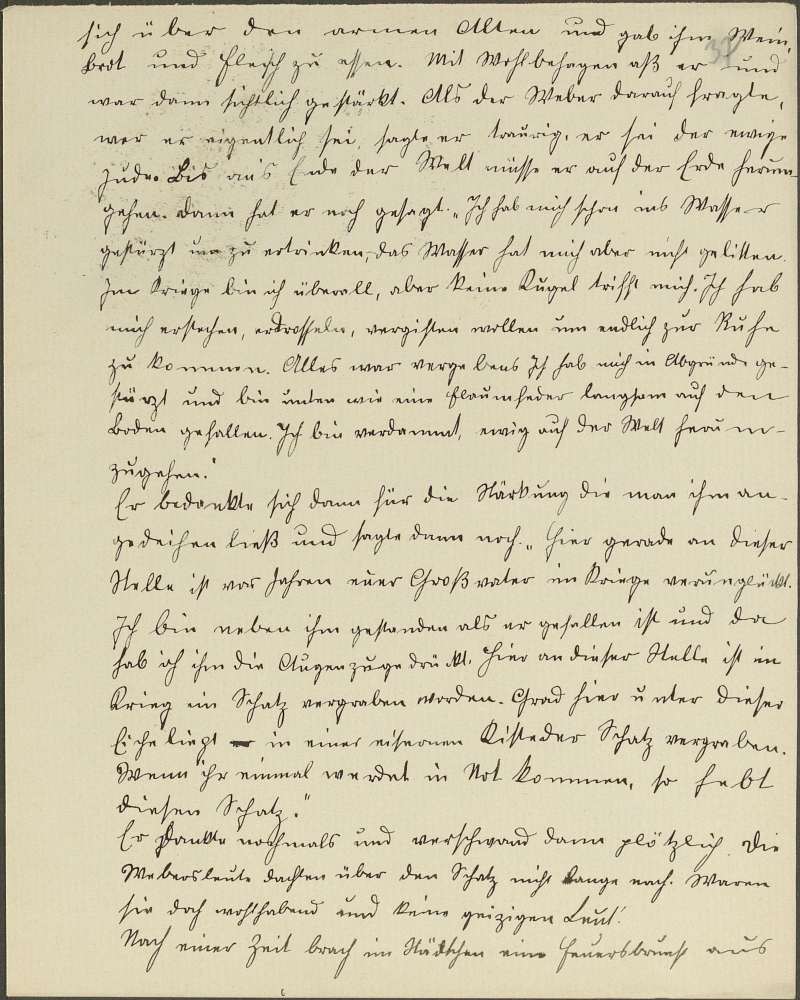 sich über den armen Alten und gab ihm Wein,
Brot und Fleisch zu essen. Mit Wohlbehagen aß er und
war dann sichtlich gestärkt. Als der Weber darauf fragte,
wer er eigentlich sei, sagte er traurig, er sei der ewige
Jude. Bis an's Ende der Welt müsse er auf der Erde herum-
gehen. Dann hat er noch gesagt. „Ich hab mich schon ins Wasser
gestürzt um zu ertrinken, das Wasser hat mich aber nicht gelitten.
Im Kriege bin ich überall, aber keine Kugel trifft mich. Ich hab
mich erstechen, erdrosseln, vergiften wollen um endlich zur Ruhe
zu kommen. Alles war vergebens Ich hab mich in Abgründe ge-
stürzt und bin unten wie eine Flaumfeder langsam auf den
Boden gefallen. Ich bin verdammt, ewig auf der Welt herum-
zugehen."
Er bedankte sich dann für die Stärkung die man ihm an-
gedeihen ließ und sagte dann noch. „Hier gerade an dieser
Stelle ist vor Jahren euer Großvater im Kriege verunglückt.
Ich bin neben ihm gestanden als er gefallen ist und da
hab ich ihm die Augen zugedrückt. Hier an dieser Stelle ist im
Krieg ein Schatz vergraben worden. Grad hier unter dieser
Eiche liegt in einer eisernen Kiste der Schatz vergraben.
Wenn ihr einmal werdet in Not kommen, so hebt
diesen Schatz."
Er dankte nochmals und verschwand dann plötzlich. Die
Webersleute dachten über den Schatz nicht lange nach. Waren
sie doch wohlhabend und keine geizigen Leut'.
Nach einer Zeit brach im Städtchen eine Feuersbrunst aus